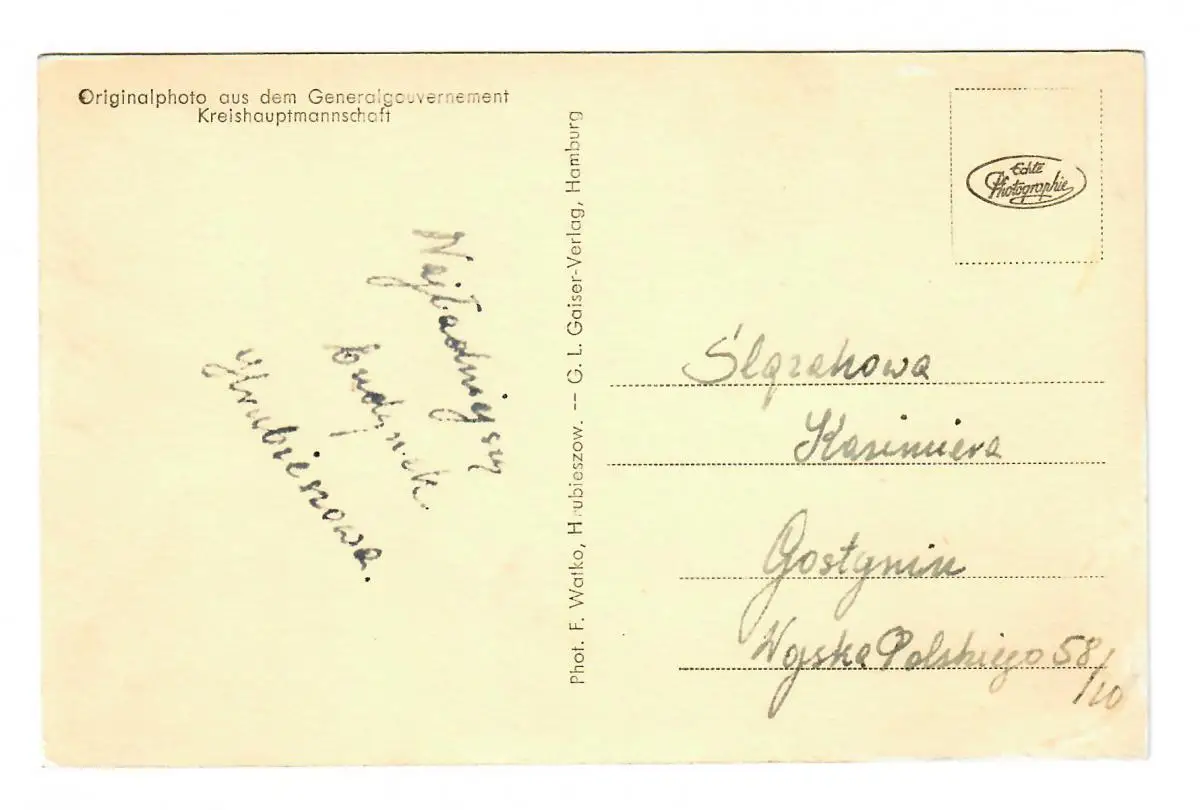 Originalphoto aus dem Generalgouvernement
Kreishauptmannschaft
Najładniejszy
budynek
Hrubieszowa.
Phot. F. Watko, Hrubieszow. -- G. L. Gaiser-Verlag, Hamburg
Echte
Photographie
Ślązakowa
Kazimiera
Gostynin
Wojska Polskiego 58/10